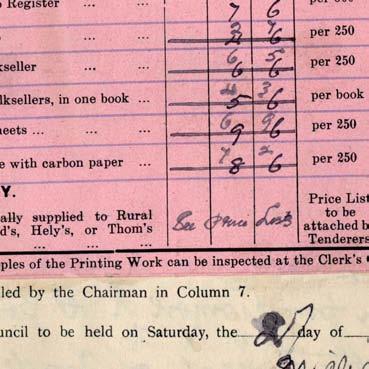 Register ... ... 7 6 per 500
per 250
kseller ... ... 6 6 per 250
lksellers, in one book ... 5 6 per book
eets ... ... ... 9 6 per 250
e with carbon paper ... 8 6 per 250
Y.
ally supplied to Rural
d's, Hely's, or Thom's
... ... ...
See Price Lists
Price List
to be
attached b
Tenderers
ples of the Printing Work can be inspected at the Clerk's
led by the Chairman in Column 7.
uncil to be held on Saturday, the 27 day of